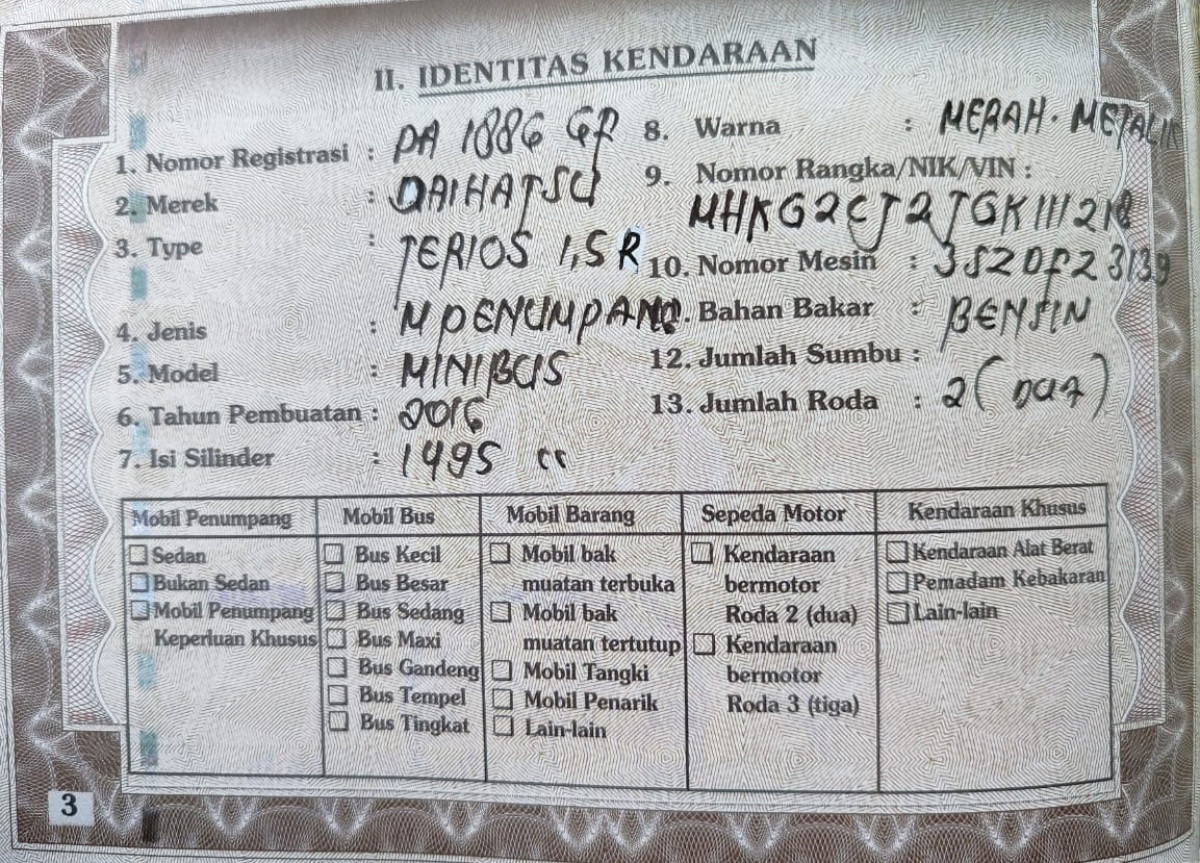 II. IDENTITAS KENDARAAN
1. Nomor Registrasi : PA 1886 GP
2. Merek : DAIHATSU
3. Type : TERIOS 1,5 R
4. Jenis : M PENUMPANG
5. Model : MINIBUS
6. Tahun Pembuatan : 2016
7. Isi Silinder : 1495 cc
8. Warna : MERAH. METALIK
9. Nomor Rangka/NIK/VIN :
MHKG2CJ2JGK111218
10. Nomor Mesin : 3SZDFZ3139
11. Bahan Bakar : BENSIN
12. Jumlah Sumbu :
13. Jumlah Roda : 2 (DUA)
Mobil Penumpang
Sedan
Bukan Sedan
Mobil Penumpang
Keperluan Khusus
Mobil Bus
Bus Kecil
Bus Besar
Bus Sedang
Bus Maxi
Bus Gandeng
Bus Tempel
Bus Tingkat
Mobil Barang
Mobil bak
muatan terbuka
Mobil bak
muatan tertutup
Mobil Tangki
Mobil Penarik
Lain-lain
Sepeda Motor
Kendaraan
bermotor
Roda 2 (dua)
Kendaraan
bermotor
Roda 3 (tiga)
Kendaraan Khusus
Kendaraan Alat Berat
Pemadam Kebakaran
Lain-lain
3